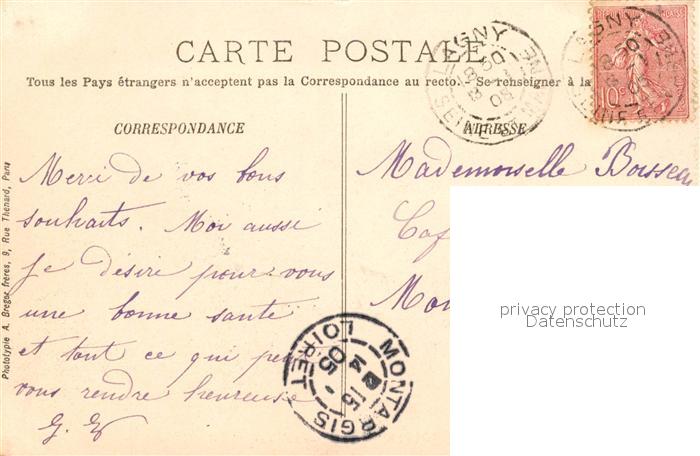 CARTE POSTALE
Tous les Pays étrangers n'acceptent pas la Correspondance au recto. - Se renseigner à la
CORRESPONDANCE
ADRESSE
Merci de vos bons
souhaits. Moi aussi
je désire pour vous
une bonne santé
et tout ce qui peut
vous rendre heureuse
G.
Mademoiselle Boisseau
Caf
Mon
Phototypie A. Breger frères, 9, Rue Thénard, Paris
LAGNY
SEINE ET MARNE
LAGNY
10c
MONTARGIS
LOIRET
05
privacy protection
Datenschutz